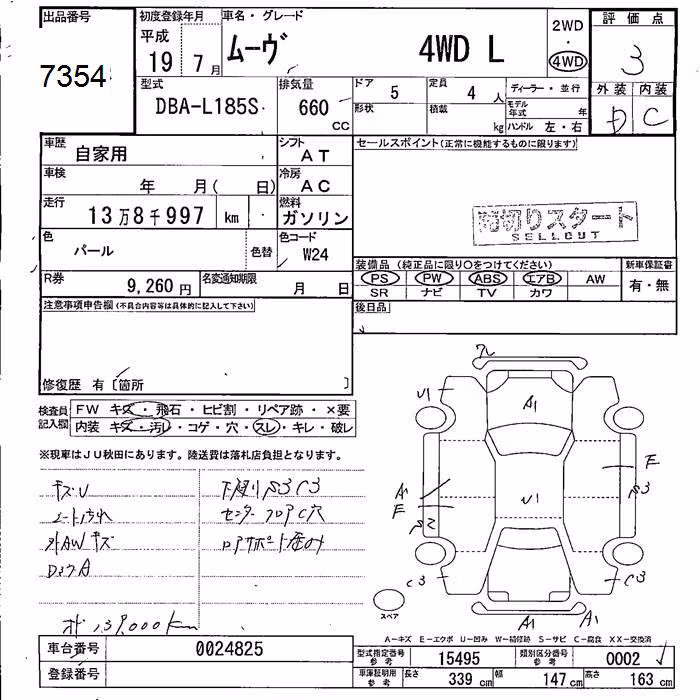 出品番号
7354
初度登録年月
平成
19 7月
車名・グレード
ムーヴ 4WD L
2WD
・
4WD
評価点
3
外装 内装
D C
型式
DBA-L185S
排気量
660
CC
ドア
5
形状
定員
4 人
積載
kg
ディーラー・並行
モデル年式 年
ハンドル 左・右
車歴
自家用
シフト
AT
車検
年 月( 日)
冷房
AC
走行
13万8千997 km
燃料
ガソリン
色
パール
色替
色コード
W24
R券
9,260円
名変通知期限
月 日
セールスポイント(正常に機能するものに限ります)
売切りスタート
SELLOUT
装備品 (純正品に限り○をつけてください)
PS PW ABS エアB AW
SR ナビ TV カワ
新車保証書
有・無
後日品
注意事項申告欄(不具合内容等は具体的に記入して下さい)
修復歴 有〔箇所 〕
検査員記入欄
FW キズ・飛石・ヒビ割・リペア跡・×要
内装 キズ・汚レ・コゲ・穴・スレ・キレ・破レ
※現車はJU秋田にあります。陸送費は落札店負担となります。
キズU
シート汚れ
外AWキズ
下廻りS3C3
センターフロアC穴
ロアサポート
オド139000km
A1
U1
U1
E
S3
A1
E
S2
C3
C3
A1
A1
スペア
A-キズ E-エクボ U-凹み W-補修跡 S-サビ C-腐食 XX-交換済
車台番号
0024825
登録番号
型式指定番号 参考
15495
類別区分番号 参考
0002
車庫証明用 参考
長さ 339 cm 幅 147 cm 高さ 163 cm